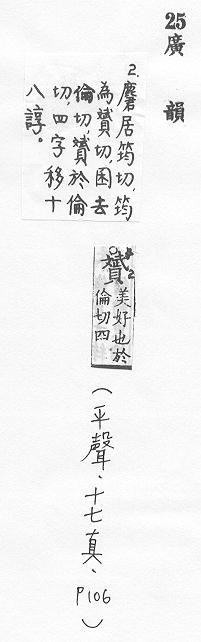 25廣韻
2.
麏居筠切,筠
為贇切,囷去
倫切,贇於倫
切,四字移十
八諄。
2
贇美好也於
倫切四
(平聲、十七真、P106)